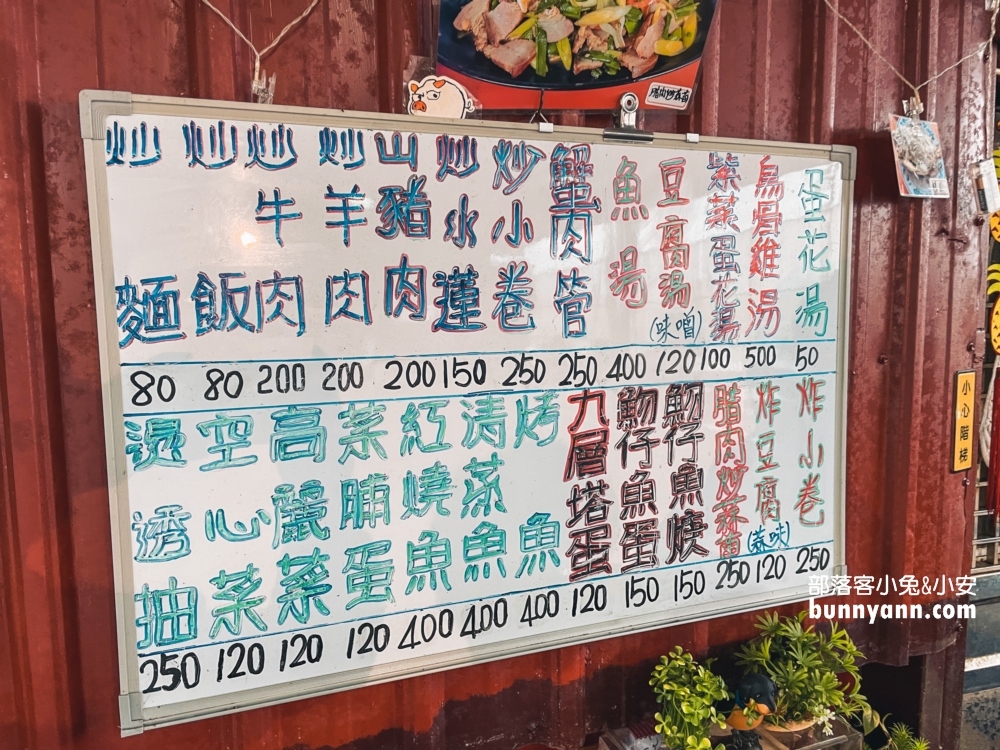 腊肉炒蒜苗
炒麵
炒飯
炒牛肉
炒羊肉
山豬肉
炒水蓮
炒小卷
蟹肉管
魚湯
豆腐湯(味噌)
紫菜蛋花湯
烏骨雞湯
蛋花湯
80 80 200 200 200 150 250 250 400 120 100 500 50
燙透抽
空心菜
高麗菜
菜脯蛋
紅燒魚
清蒸魚
烤魚
九層塔蛋
魩仔魚蛋
魩仔魚焿
腊肉炒蒜苗
炸豆腐(蒜味)
炸小卷
250 120 120 120 400 400 400 120 150 150 250 120 250
小心階梯
部落客小兔&小安
bunnyann.com